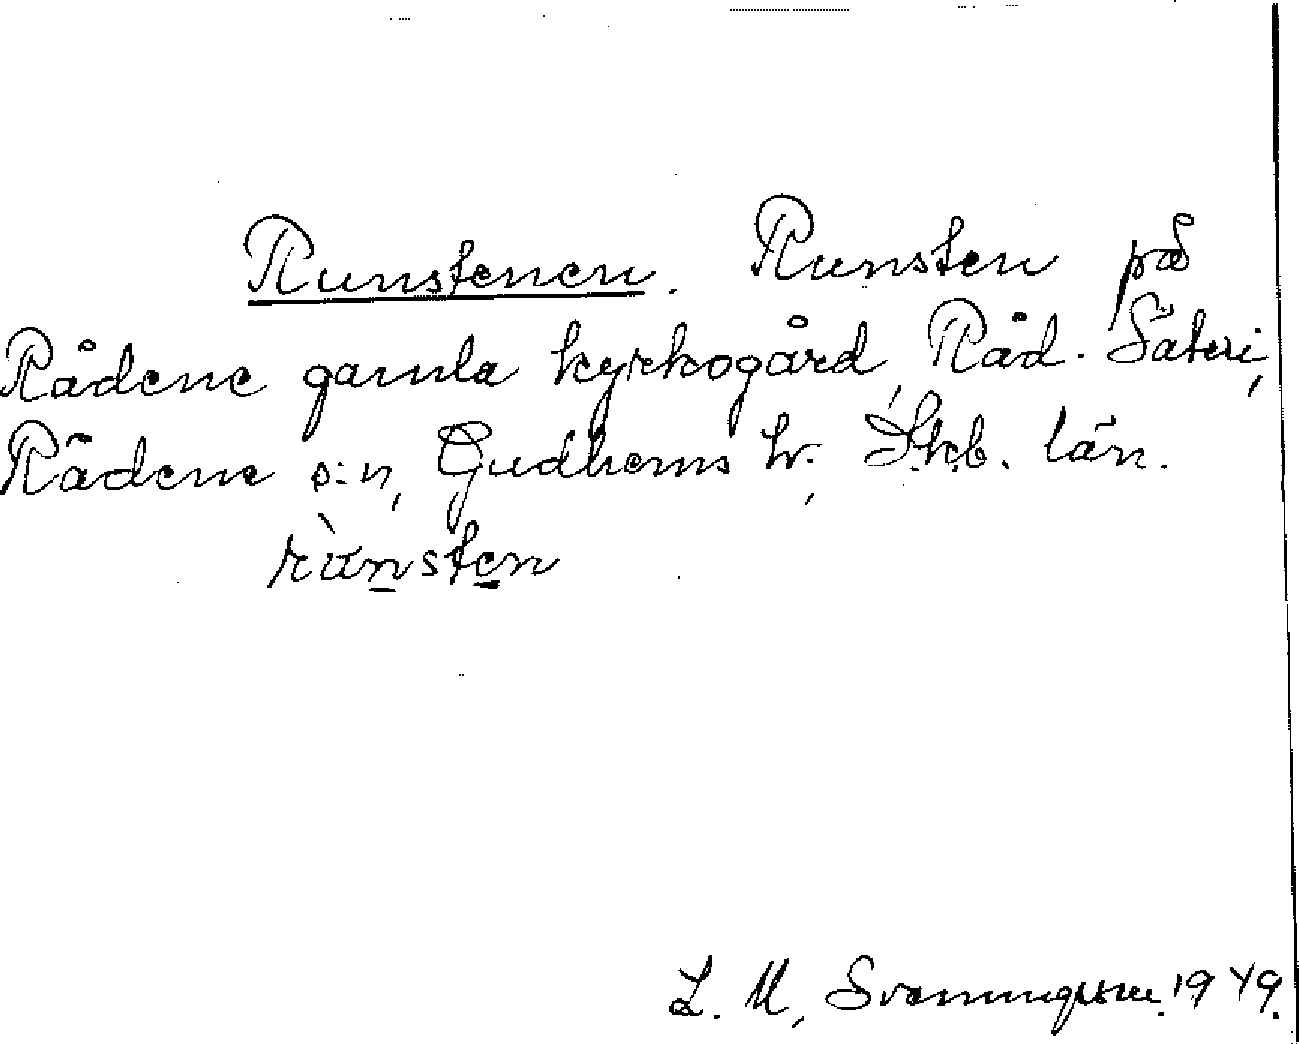 Runstenen. Runsten på
Rådene gamla kyrkogård, Råd. Säteri,
Rådene s:n, Gudhems hr., Skb. län.
rùnsten
L. M. Svenningsson. 1949.